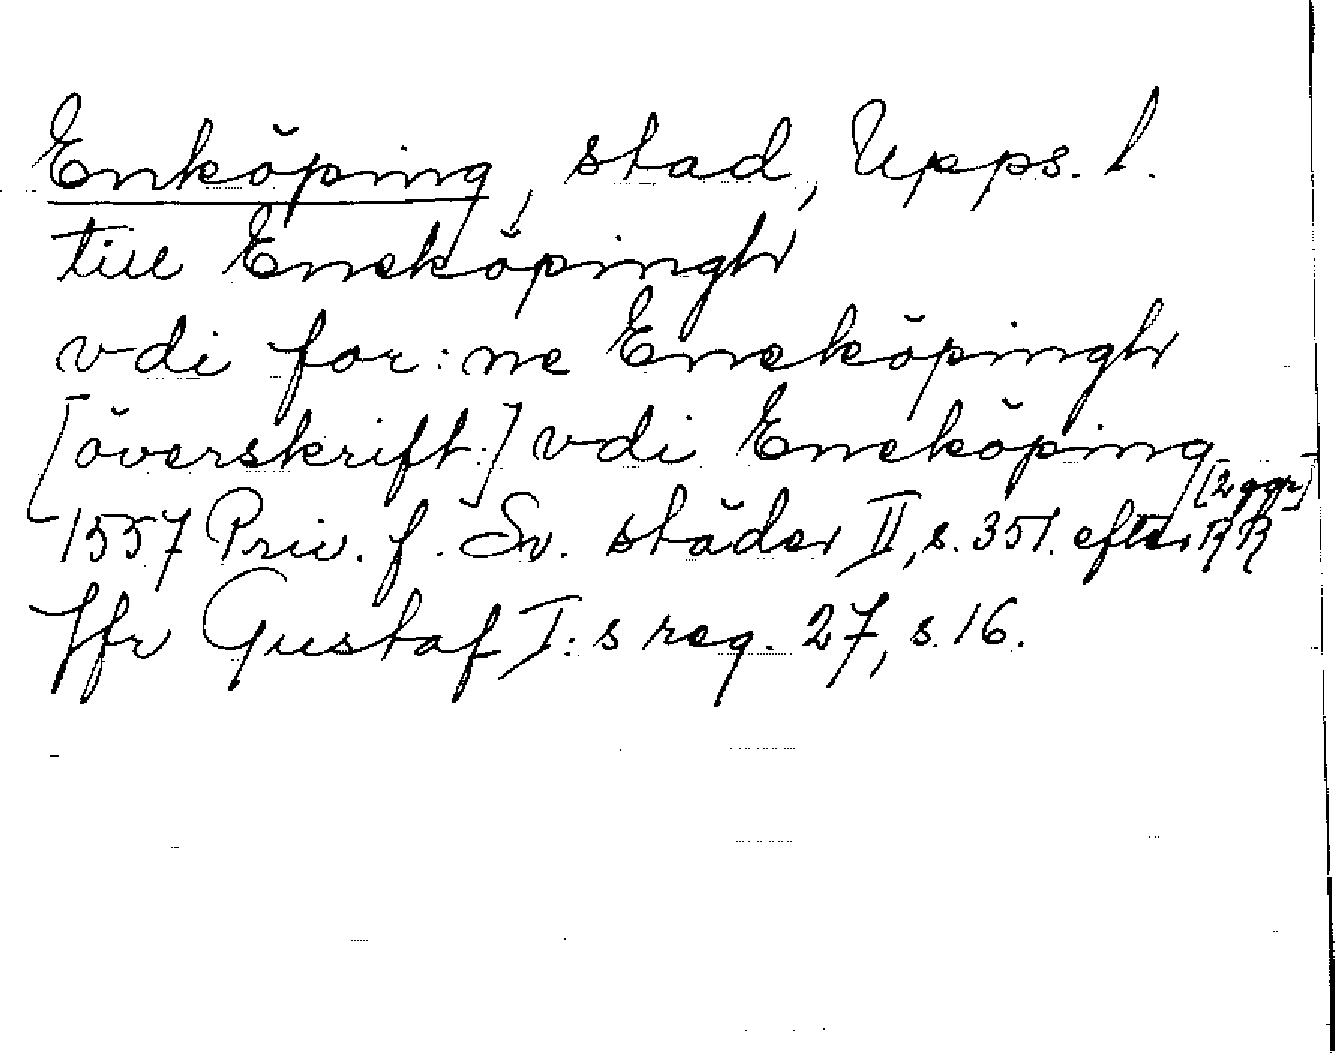 Enköping, stad, Upps. l.
till Eneköpingh
vdi for:ne Eneköpingh
[överskrift:] vdi Eneköping
[2 ggr]
1557 Priv. f. Sv. städer II, s. 351. efter RR
Jfr Gustaf I:s reg. 27, s. 16.